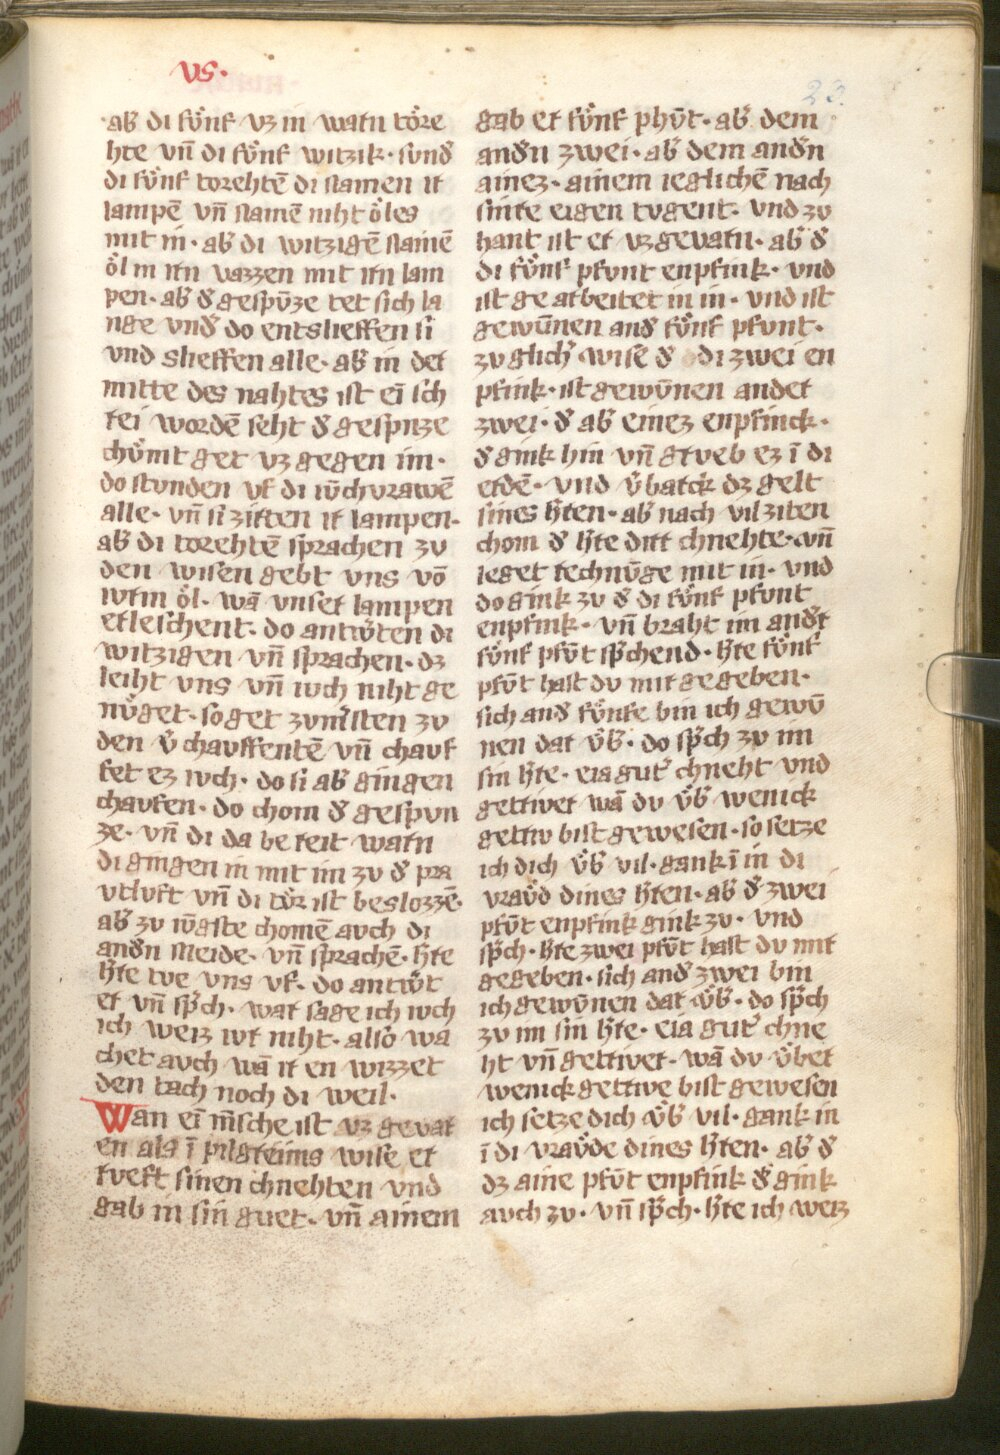 vs.
23.
ab̾ di fu̍nf vz in warn to̍re
hte vn̄ di fu̍nf witzik · sund̾
di fu̍nf torehtē di namen ir
lampē vn̄ namē niht o̍les
mit in · ab̾ di witzigē namē
o̍l in irn vazzen mit irn lam
pen · ab̾ d̾ gespu̍ze tet sich la
nge vnd̾ do entslieffen si
vnd slieffen alle · ab̾ in der
mitte des nahtes ist ei̅ sch
rei wordē seht d̾ gespnze
chu̍mt get vz gegen im ·
do stunden vf di iu̍chvrawē
alle · vn̄ si zirten ir lampen ·
ab̾ di torehtē sprachen zv
den wisen gebt vns vō
ivrm o̍l · wā vnser lampen
erleschent · do antwu̍rten di
witzigen vn̄ sprachen · dz
leiht vns vn̄ iuch niht ge
nu̍get · so get zvmi̍sten zv
den v̾chauffentē vn̄ chauf
fet ez iuch · do si ab̾ gingen
chaufen · do chom d̾ gespvn
ze · vn̄ di da bereit warn
di gingen in mit im zv d̾ pra
vtluft vn̄ di tu̍r ist beslozzē ·
ab̾ zv iu̍gste chomē auch di
and̾n meide · vn̄ sprachē · h̾re
h̾re tue vns vf · do antwu̍rt
er vn̄ sp̾ch · war sage ich iuch
ich weiz ivr niht · also wa
chet auch wā ir en wizzet
den tach noch di weil ·
Wan ei̅ m̅sche ist vz gevar
en als i̅ pilgreims wise er
rveft sinen chnehten vnd
gab in sin guet · vn̄ ainem
gab er fu̍nf phu̅t · ab̾ dem
and̾n zwei · ab̾ dem and̾n
ainez · ainem ieglichē nach
sinre eigen tvgent · vnd zv
hant ist er vzgevarn · ab̾ d̾
di fu̍nf pfunt enpfink · vnd
ist ge arbeitet in in · vnd ist
gewu̅nen and̾ fu̍nf pfunt ·
zv glich̾ wise d̾ di zwei en
pfink · ist gewu̅nen ander
zwei · d̾ ab̾ einez enpfinck ·
d̾ gink hin vn̄ grveb ez i̅ di
erdē · vnd v̾barck dz gelt
sines h̾ren · ab̾ nach vil ziten
chom d̾ h̾re dirr chnehte · vn̄
leget rechnu̅ge mit in · vnd
do gink zv d̾ di fu̍nf pfunt
enpfink · vn̄ braht im and̾r
fu̍nf pfu̅t sp̾chend · h̾re fu̍nf
pfu̅t hast du mir gegeben ·
sich and̾ fu̍nfe bin ich gewu̅
nen dar v̍b̾ · do sp̾ch zv im
sin h̾re · eia gut̾ chneht vnd
getriver wā du v̍b̾ wenick
getriv bist gewesen · so setze
ich dich v̍b̾ vil · gank i̅ in di
vrau̍d dines h̾ren · ab̾ d̾ zwei
pfu̅t enpfink gink zv · vnd
sp̾ch · h̾re zwei pfu̅t hast du mir
gegeben · sich and̾ zwei bin
ich gewu̅nen dar v̍b̾ · do sp̾ch
zv im sin h̾re · eia gut̾ chne
ht vn̄ getriver · wā du v̍ber
wenick getrive bist gewesen
ich setze dich v̍b̾ vil · gank in
i̅ di vrau̍de dines h̾ren · ab̾ d̾
dz aine pfu̅t enpfink d̾ gink
auch zv · vn̄ sp̾ch · h̾re ich weiz